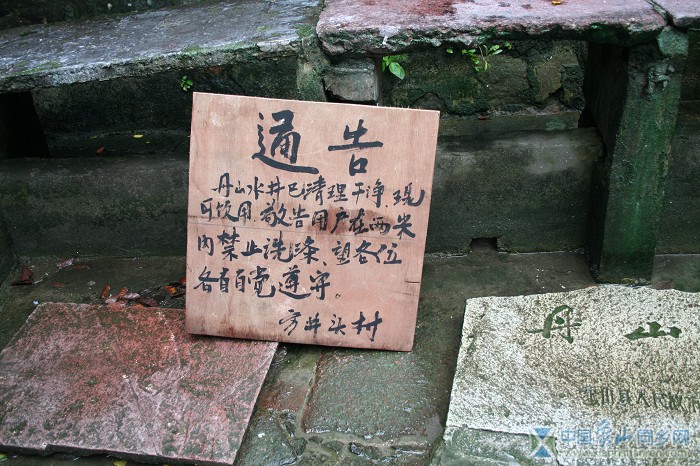 通告
丹山水井已清理干净、现
可饮用、敬告用户在两米
内禁止洗涤、望各位
各自自觉遵守。
方井头村
丹山
中国象山同乡网